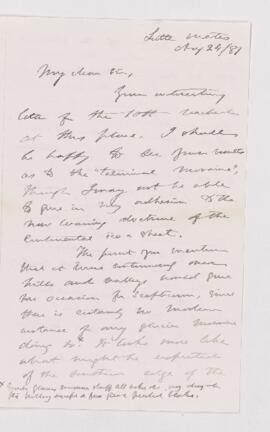 Little Metis
Aug 24/87
My dear Sir,
Your interesting
letter of the 10th reached me
at this place. I should
be happy to see your results
as to the "terminal moraine",
though I may not be able
to give in my adhesion to the
now waning doctrine of the
Continental ice-sheet.
The point you mention
that it runs over
hills and valleys would give
me occasion for scepticism, since
there is certainly no modern
instance of any glacier moraine
doing so.* It looks more like
what might be expected
of the southern edge of the
the valley except a few blocks.